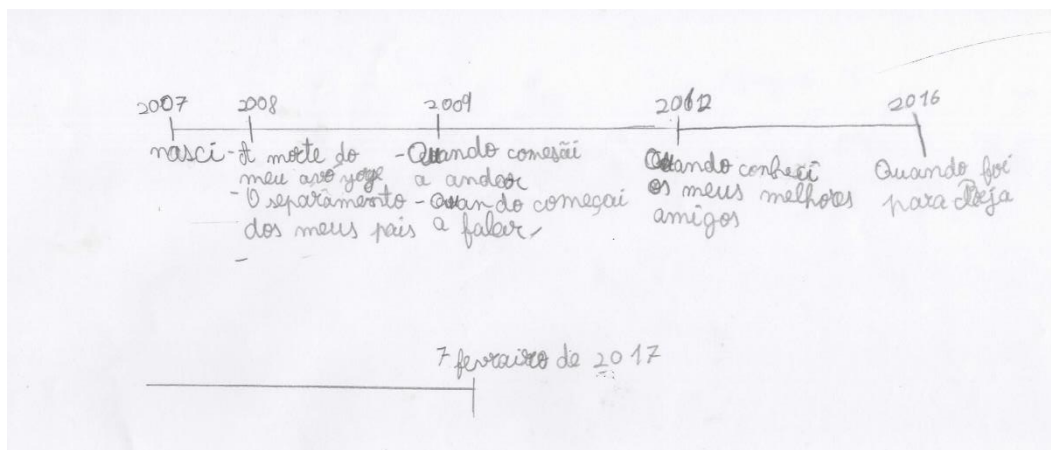 2007 2008 2009 2012 2016
nasci
- A morte do
meu avô yoge
- O separamento
dos meus pais
-
- Quando comesãi
a andar
- Quando começai
a falar
Quando conheci
os meus melhores
amigos
Quando foi
para Beja
7 fevraairo de 2017